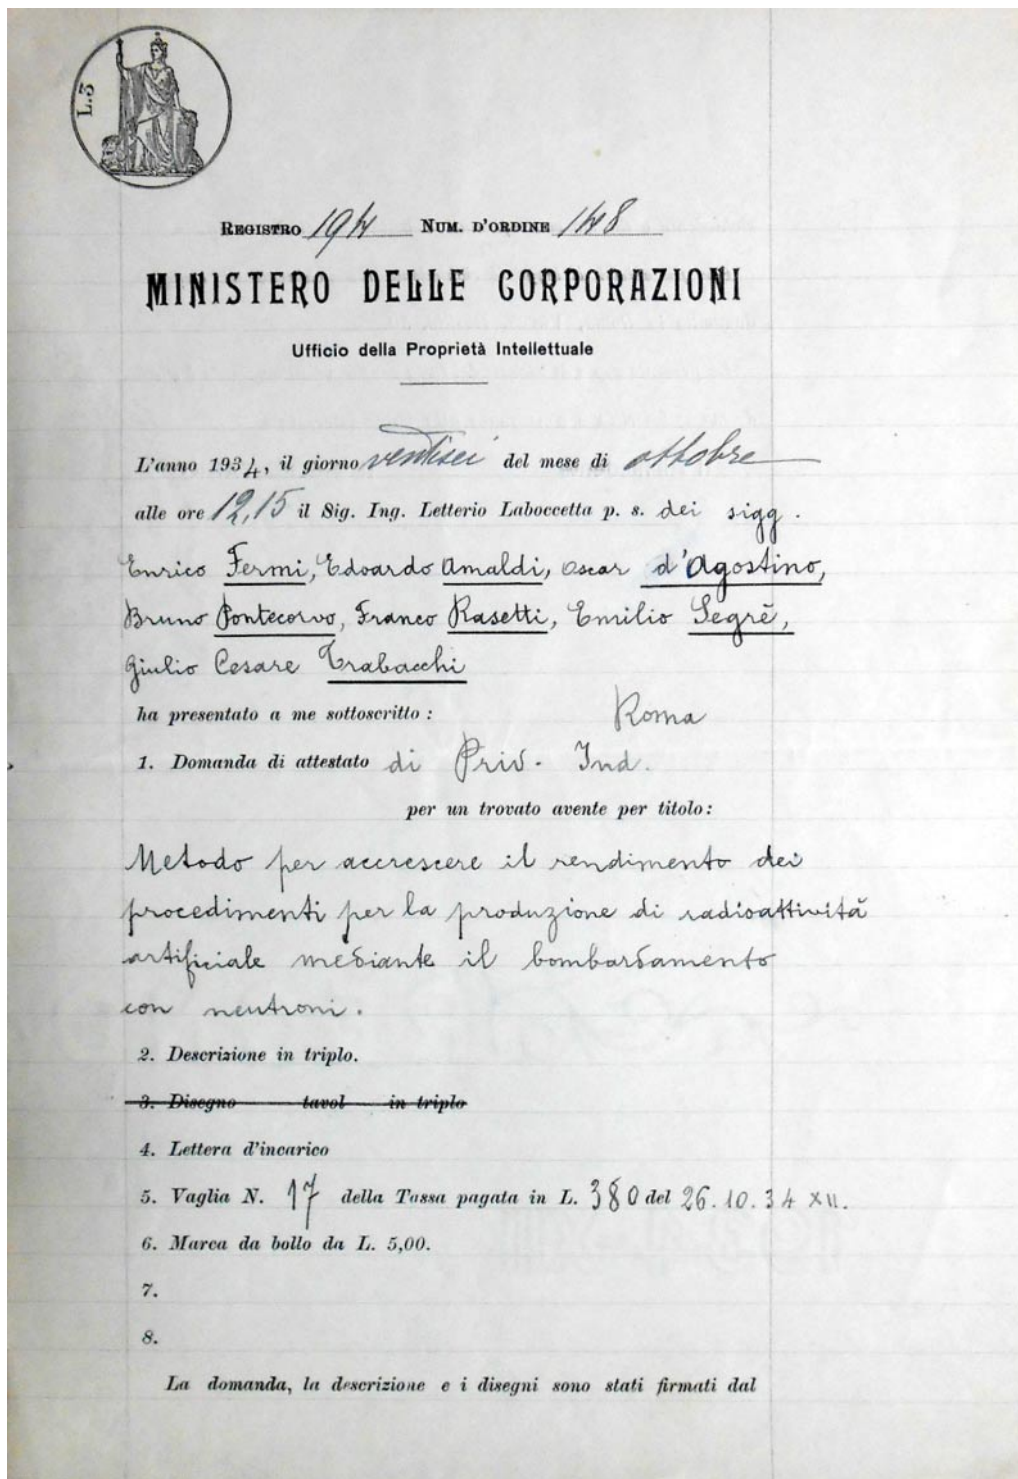 L.3
REGISTRO 194 NUM. D'ORDINE 148
MINISTERO DELLE CORPORAZIONI
Ufficio della Proprietà Intellettuale
L'anno 1934, il giorno ventisei del mese di ottobre
alle ore 12,15 il Sig. Ing. Letterio Laboccetta p. s. dei sigg.
Enrico Fermi, Edoardo Amaldi, Oscar d'Agostino,
Bruno Pontecorvo, Franco Rasetti, Emilio Segrè,
Giulio Cesare Trabacchi
ha presentato a me sottoscritto : Roma
1. Domanda di attestato di Priv. Ind.
per un trovato avente per titolo:
Metodo per accrescere il rendimento dei
procedimenti per la produzione di radioattività
artificiale mediante il bombardamento
con neutroni.
2. Descrizione in triplo.
3. Disegno tavol in triplo
4. Lettera d'incarico
5. Vaglia N. 17 della Tassa pagata in L. 380 del 26.10.34 XII.
6. Marca da bollo da L. 5,00.
7.
8.
La domanda, la descrizione e i disegni sono stati firmati dal